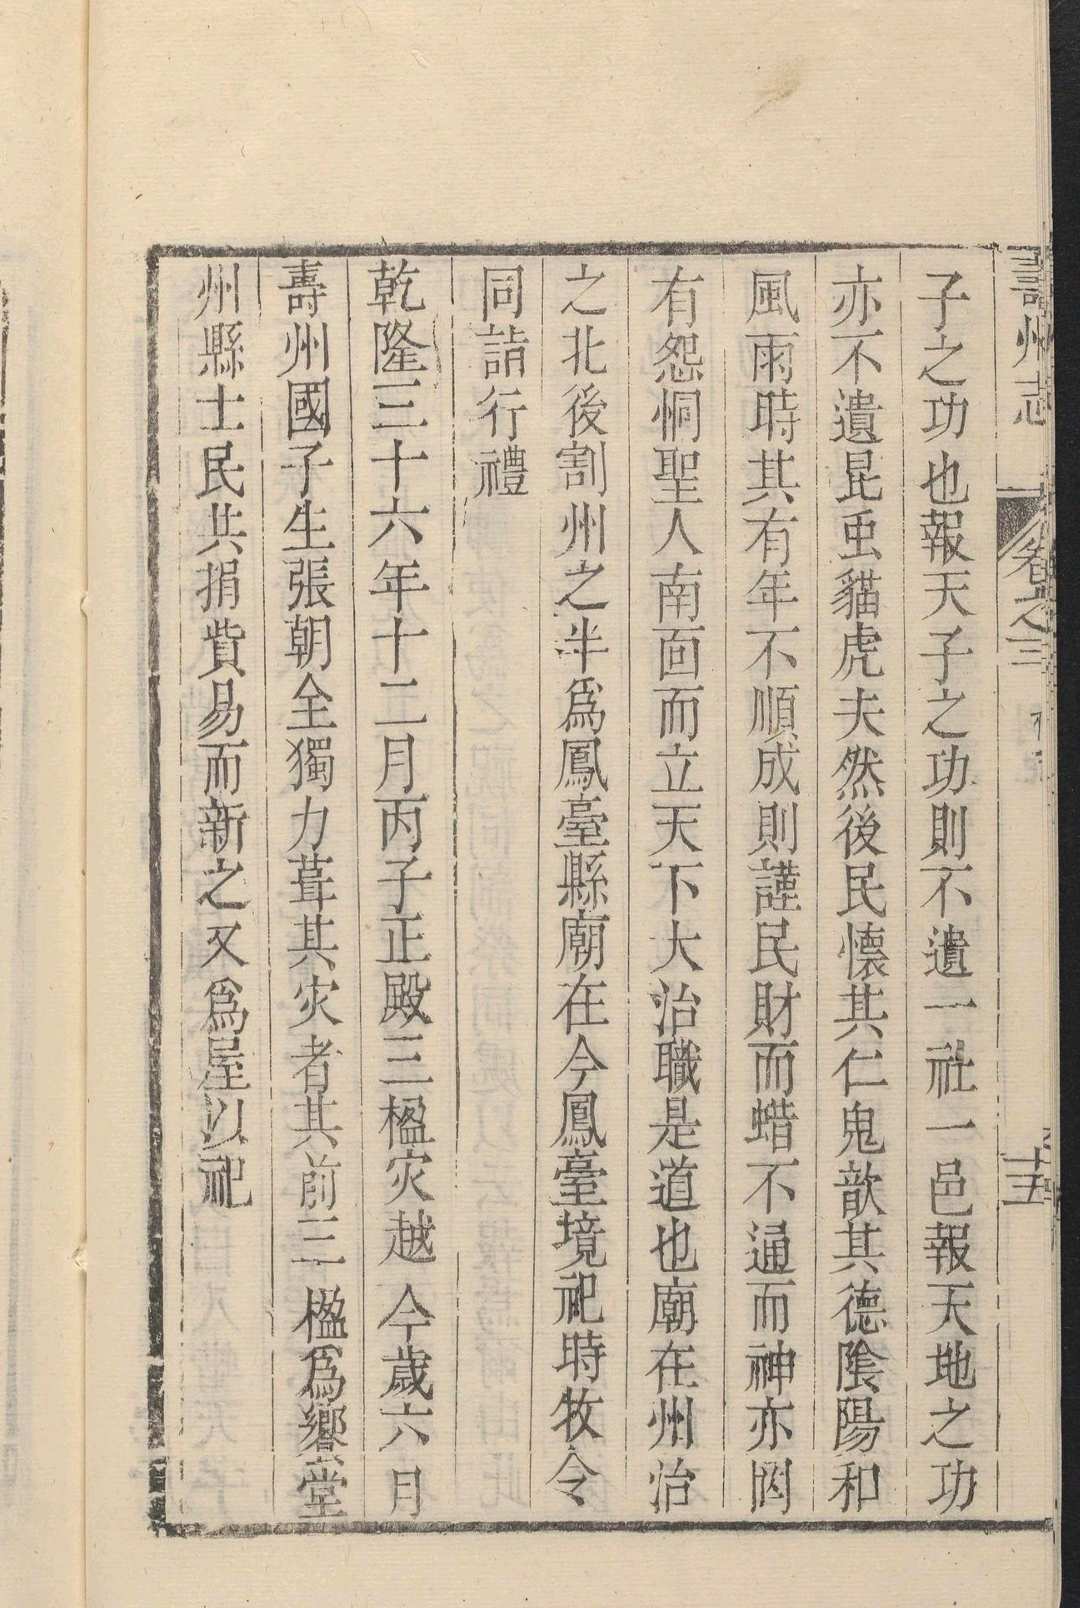 壽州志 卷之三 十五
子之功也報天子之功則不遺一社一邑報天地之功
亦不遺昆虫貓虎夫然後民懷其仁鬼歆其德陰陽和
風雨時其有年不順成則謹民財而蜡不通而神亦罔
有怨恫聖人南面而立天下大治職是道也廟在州治
之北後割州之半為鳳臺縣廟在今鳳臺境祀時牧令
同詣行禮
乾隆三十六年十二月丙子正殿三楹灾越今歲六月
壽州國子生張朝全獨力葺其灾者其前三楹為饗堂
州縣士民共捐貲易而新之又為屋以祀